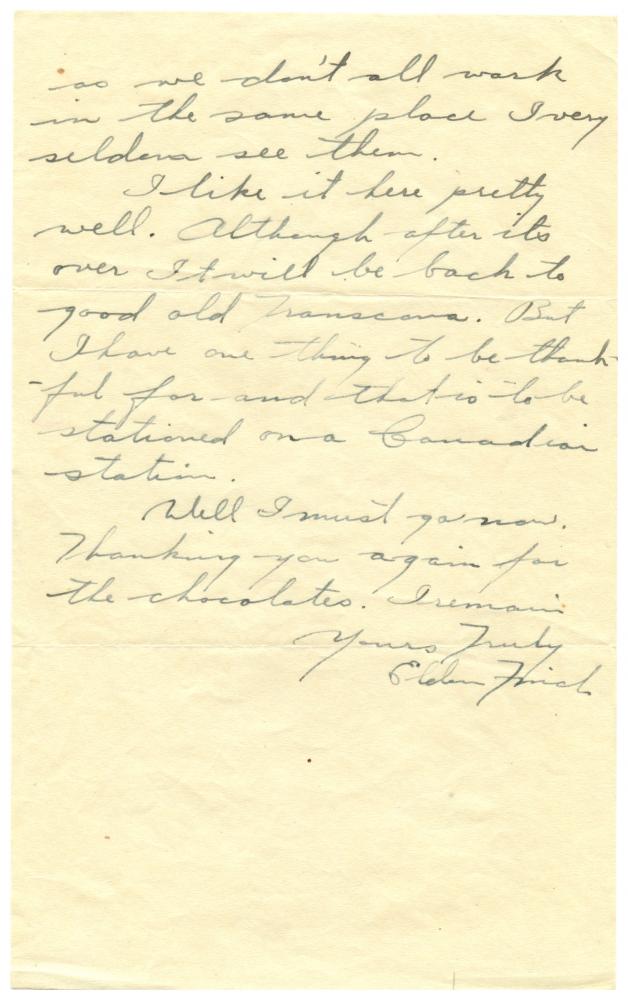 as we don't all work
in the same place I very
seldom see them.
I like it here pretty
well. Although after its
over It will be back to
good old Transcona. But
I have one thing to be thank-
-ful for and that is to be
stationed on a Canadian
station.
Well I must go now.
Thanking you again for
the chocolates. I remain
Yours Truly
Elden Finch